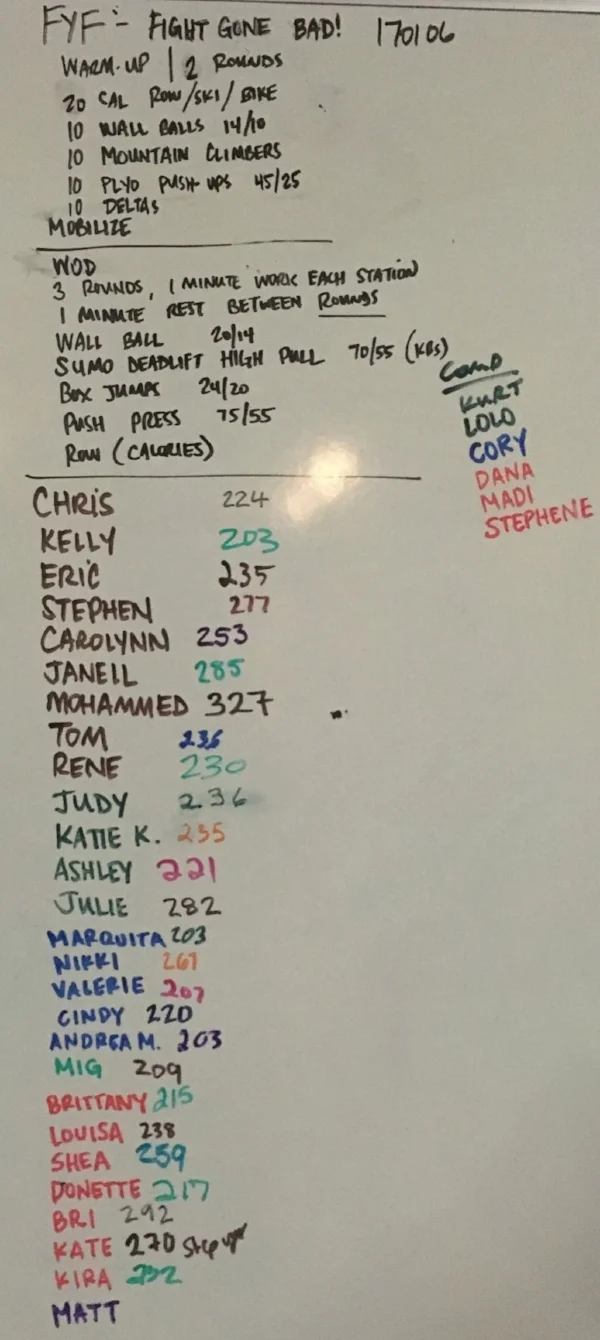 FYF:- FIGHT GONE BAD! 170106
WARM-UP | 2 ROUNDS
20 CAL ROW/SKI/BIKE
10 WALL BALLS 14/10
10 MOUNTAIN CLIMBERS
10 PLYO PUSH-UPS 45/25
10 DELTAS
MOBILIZE
WOD
3 ROUNDS, 1 MINUTE WORK EACH STATION
1 MINUTE REST BETWEEN ROUNDS
WALL BALL 20/14
SUMO DEADLIFT HIGH PULL 70/55 (KBs)
BOX JUMPS 24/20
PUSH PRESS 75/55
ROW (CALORIES)
COMP
KURT
LOLO
CORY
DANA
MADI
STEPHENE
CHRIS 224
KELLY 203
ERIC 235
STEPHEN 277
CAROLYNN 253
JANELL 285
MOHAMMED 327
TOM 236
RENE 230
JUDY 236
KATIE K. 235
ASHLEY 221
JULIE 282
MARQUITA 203
NIKKI 267
VALERIE 207
CINDY 220
ANDREA M. 203
MIG 209
BRITTANY 215
LOUISA 238
SHEA 259
DONETTE 217
BRI 292
KATE 270 step up
KIRA 232
MATT